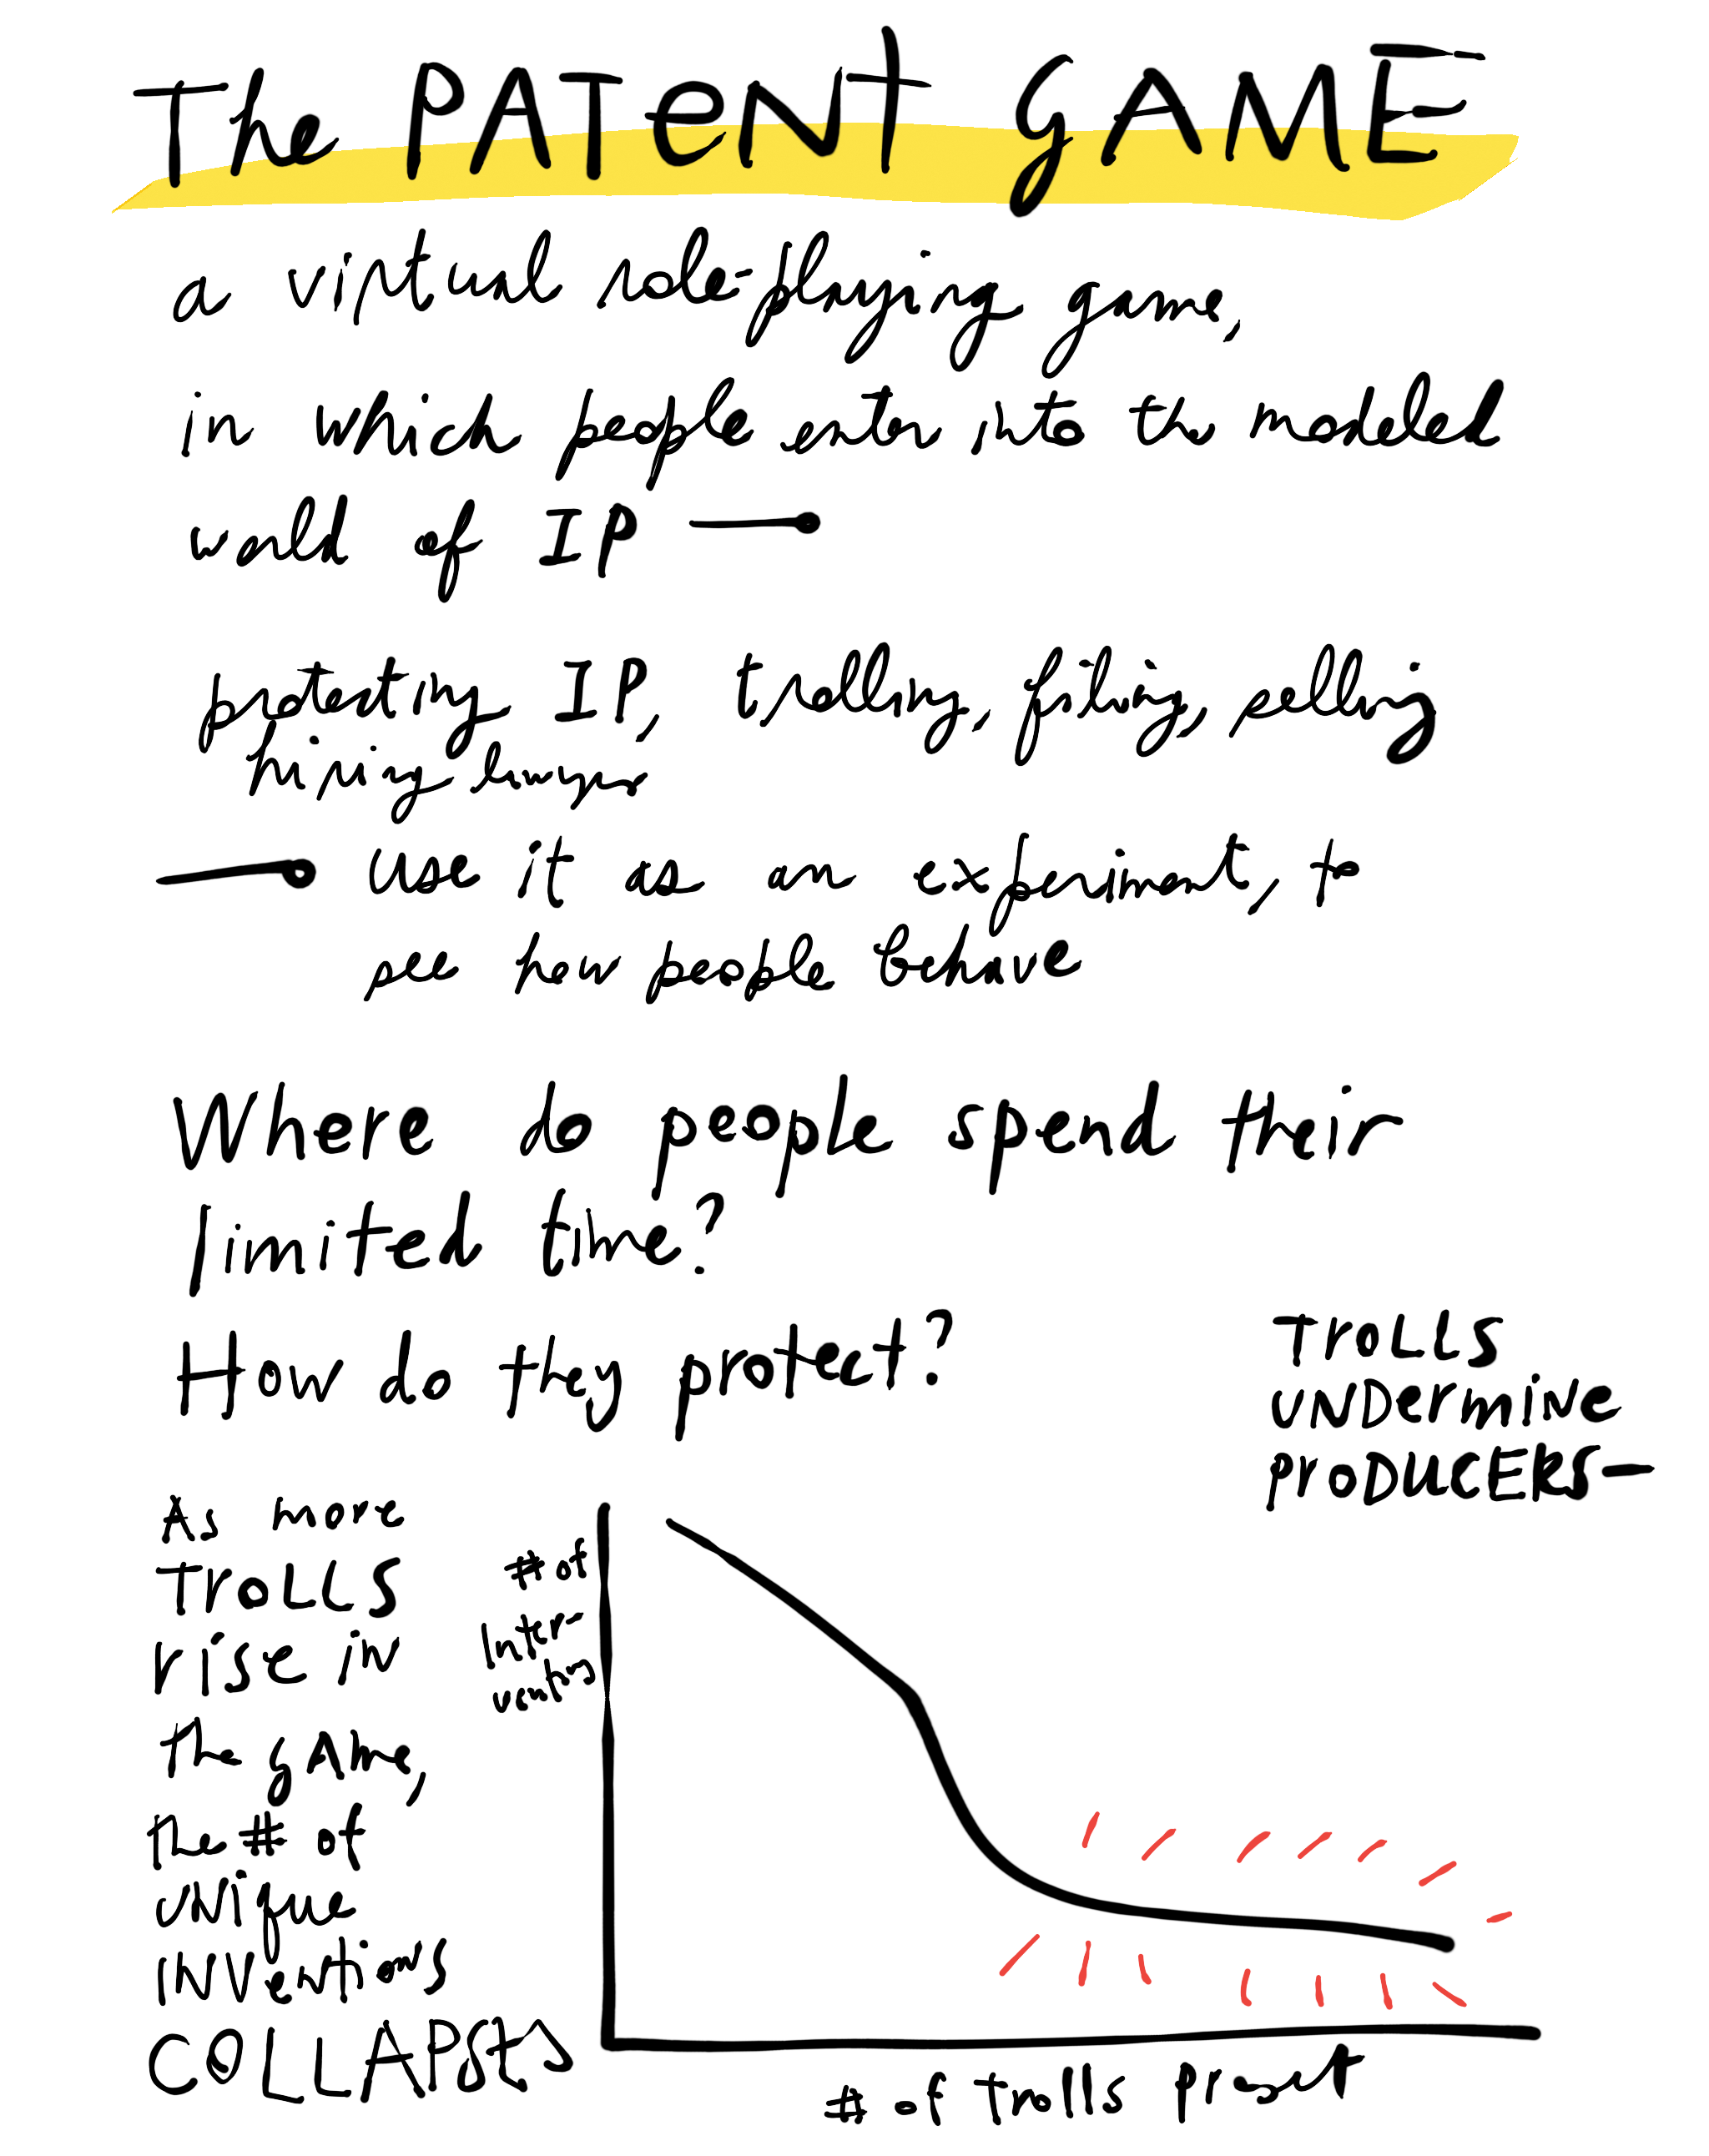 The PATENT GAME
a virtual role-playing game,
in which people enter into the modeled
world of IP
protecting IP, trolling, filing, selling
hiring lawyers
use it as an experiment, to
see how people behave
Where do people spend their
limited time?
How do they protect?
TROLLS
UNDermine
PRODUCERS—
As more
TROLLS
rise in
the gAme,
the # of
UNique
INVentions
COLLAPSES
# of
Inter-
ventions
# of trolls present